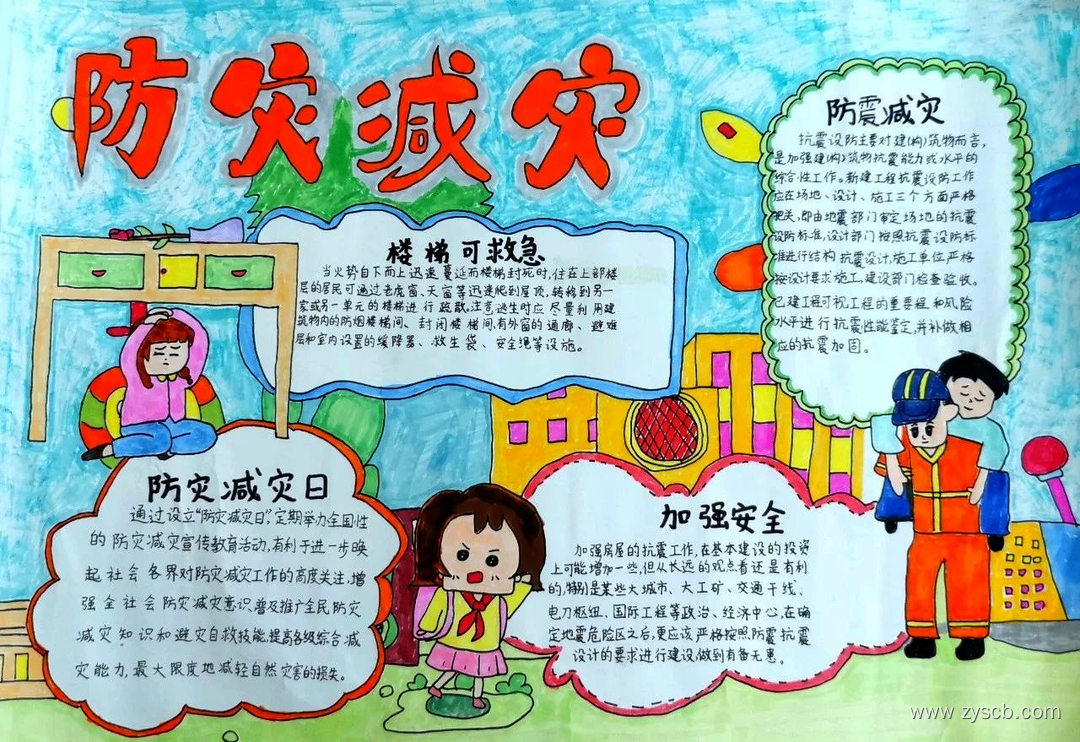 防灾减灾
楼梯可救急
当火势自下而上迅速蔓延而楼梯封死时,住在上部楼
层的居民可通过老虎窗、天窗等迅速爬到屋顶,转移到另一
家或另一单元的楼梯进行疏散,注意逃生时应尽量利用建
筑物内的防烟楼梯间、封闭楼梯间,有外留的通廊、避难
层和室内设置的缓降器、救生袋、安全绳等设施。
防震减灾
抗震设防主要对建(构)筑物而言,
是加强建(构)筑物抗震能力或水平的
综合性工作。新建工程抗震设防工作
应在场地、设计、施工三个方面严格
把关,即由地震部门审定场地的抗震
设防标准,设计部门按照抗震设防标
准进行结构抗震设计,施工单位严格
按设计要求施工,建设部门检查验收。
已建工程可视工程的重要程和风险
水平进行抗震性能鉴定,并补做相
应的抗震加固。
防灾减灾日
通过设立“防灾减灾日”,定期举办全国性
的防灾减灾宣传教育活动,有利于进一步唤
起社会各界对防灾减灾工作的高度关注,增
强全社会防灾减灾意识普及推广全民防灾
减灾知识和避灾自救技能,提高各级综合减
灾能力,最大限度地减轻自然灾害的损失。
加强安全
加强房屋的抗震工作,在基本建设的投资
上可能增加一些,但从长远的观点看还是有利
的,特别是某些大城市、大工矿、交通干线、
电刀枢纽、国际工程等政治、经济中心,在确
定地震危险区之后,更应该严格按照防震抗震
设计的要求进行建设,做到有备无患。
www.zyscb.com